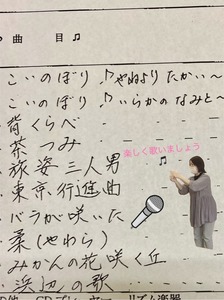 曲　目♫
こいのぼり ♪やねより たかい〜
こいのぼり ♪いらかの なみと〜
背くらべ
茶つみ
楽しく歌いましょう
旅姿三人男
東京行進曲
バラが咲いた
柔(やわら)
みかんの花咲く丘
浜辺の歌